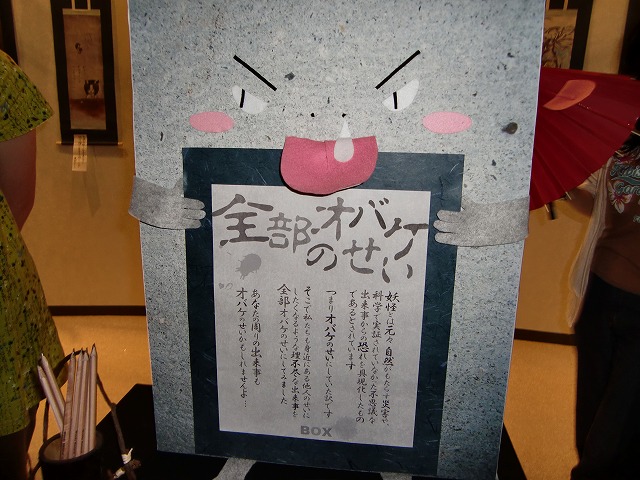 全部オバケ
のせい
妖怪は元々自然がもたらす災害や
科学で実証されているが不思議な
出来事からの恐れを具視化したもの
であるとされています
つまりオバケのせいにしていた訳です
そこで私たちも身近にある他人のせいに
したくなるような理不尽な出来事を
全部オバケのせいにしてみました
あなたの周りの出来事も
オバケのせいかもしれませんよ…
BOX